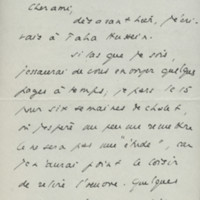 Cher ami,
dès avant-hier, j'écri-
vais à Taha Hussein.
Si las que je sois,
j'essaierai de vous envoyer quelques
pages à temps; je pars le 15
pour six semaines de chalet,
où j'espère un peu me remettre
Ce ne sera pas une "étude", car
je n'aurai point le loisir
de relire l'œuvre. Quelques